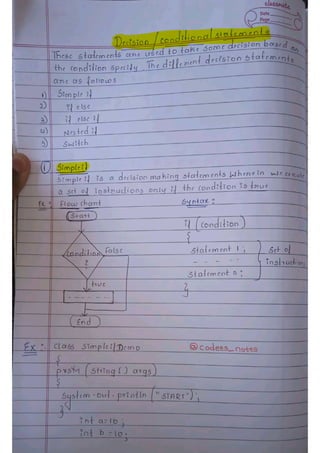 classmate
Date
Page
Decision / conditional statements
These statements are used to take some decision based on
the condition specify. The different decision statements
are as follows
1) Simple if
2) If else
3) if else if
4) Nested if
5) Switch
1 Simple if
Simple if is a decision making statements wherein we execute
a set of instructions only if the condition is true
Ex : Flow chart
Start
condition
?
False
true
End
Syntax :
if (condition)
{
Statement 1 ;
- - - -
Statement n ;
}
Set of
instruction
Ex : Class Simple If Demo
@codess_notes
{
psvm (String [] args)
{
System.out.println ("START") ;
}
int a=10 ;
int b =10 ;